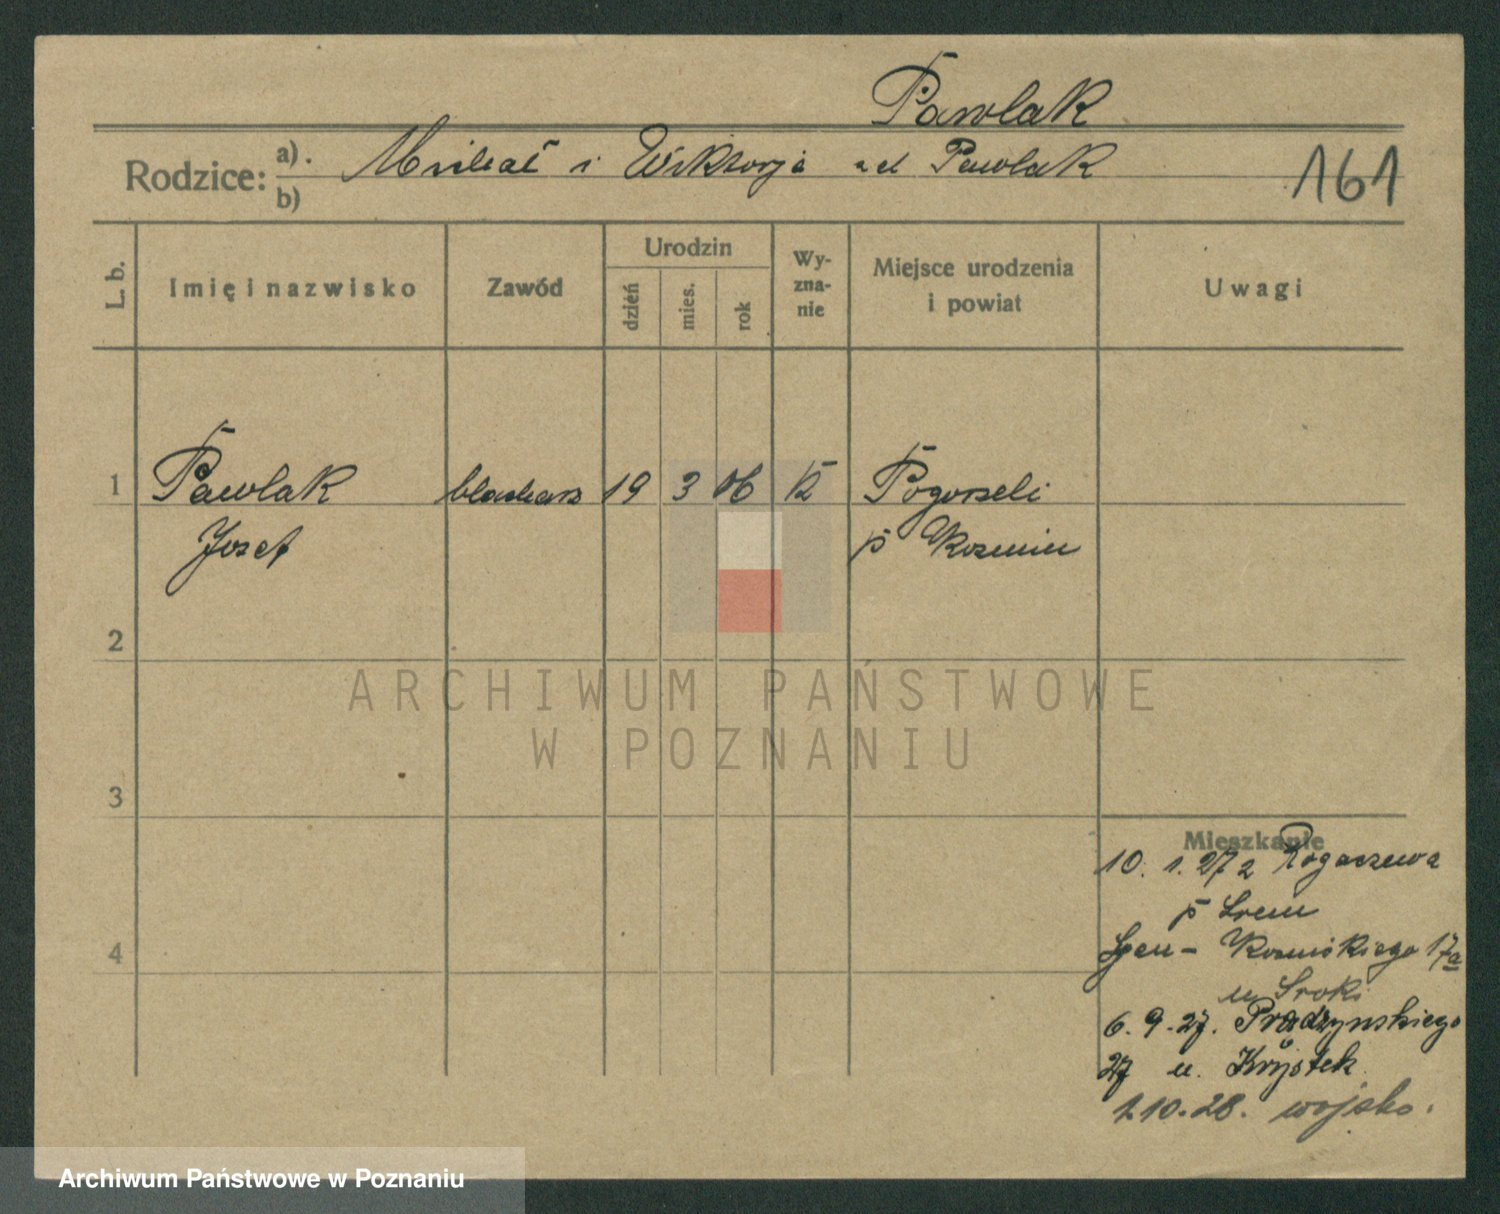 Pawlak
Rodzice: a). Michał i Wiktorja zd Pawlak
b)
161
L. b.
Imię i nazwisko
Zawód
Urodzin
dzień
mies.
rok
Wy-
zna-
nie
Miejsce urodzenia
i powiat
Uwagi
1 Pawlak blacharz 19 3 06 K Pogorzeli
Jozef p Kozmin
2
3
4
Mieszkanie
10. 1. 27 z Rogaczewa
p Srem
17a
u Sroki
6. 9. 27. Prądzynskiego
27 u. Krystek
1.10.28. wojsko.
ARCHIWUM PAŃSTWOWE
W POZNANIU
Archiwum Państwowe w Poznaniu